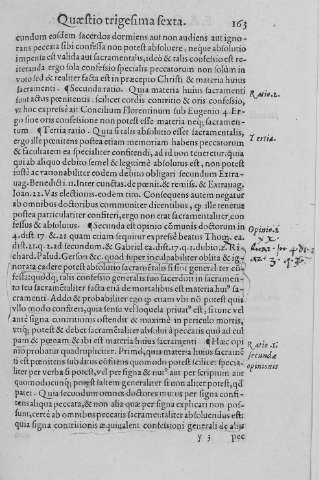 Quæstio trigesima sexta. 163
eundum eosdem sacerdos dormiens aut non audiens aut igno-
rans peccata sibi confessa non potest absoluere, neque absolutio
impensa est valida aut sacramentalis, ideo & talis confessio est re-
iteranda ergo sola confessio specialis peccatorum non solùm in
voto sed & realiter facta est in præcepto Christi & materia huius
sacramenti. ¶ Secunda ratio. Quia materia huius sacramenti
sunt actus pœnitentis. scilicet cordis contritio & oris confessio,
vt hoc expresse ait Concilium Florentinum sub Eugenio 4. Er-
go sine oris confessione non potest esse materia neque sacramen-
tum. ¶ Tertia ratio. Quia si talis absolutio esset sacramentalis,
ergo ille pœnitens postea etiam memoriam habens peccatorum
& facultatem ea specialiter confitendi, ad id non teneretur. quia
qui ab aliquo debito semel & legitimè absolutus est, non potest
iustè ac rationabiliter eodem debito obligari secundum Extra-
uag. Benedicti 11. Inter cunctas. de pœnit. & remiss. & Extrauag.
Joan. 22. Vas electionis. eodem tim. Consequens autem negatur
ab omnibus doctoribus communiter dicentibus, que ille tenetur
postea particulatim confiteri, ergo non erat sacramentaliter con-
fessus & absolutus. ¶ Secunda est opinio cõmunis doctorum in
4. dist. 17. & 21. quam etiam sequitur expressè beatus Thom. ea.
dist. 21. q. 2. ad secundum. & Gabriel ea. dist. 17. q. 1. dubio 2. Ri-
chard. Palud. Gerson &c. quod super inculpabiliter oblita & ig-
norata cadere potest absolutio sacramētalis si fiat generalis con-
fessio quòdque talis confessio generalis tuo sacerdoti in sacramen-
to seu sacramētaliter facta etiã de mortalibus est materia huius sa-
cramenti. Addo & probabiliter ego que etiam vbi nõ potest quis
vllo modo confiteri, quia sensu vel loquela priuatus est, si tunc vel
antè signa contritionis ostendit & maximè in periculo mortis,
vtique potest & debet sacramētaliter absolui à peccatis quo ad cul-
pam & pœnam & ibi est materia huius sacramenti ¶ Hæc opi
nio probatur quadrupliciter. Primò, quia materia huius sacramē
ti est pœnitens subdatus cõfitens quomodo potest scilicet specia-
liter per verba si potest, vel per signa & nutus aut per scriptum aut
quomodocunque potest saltem generaliter si non aliter potest, que
patet. Quia secundum omnes doctores mutus per signa confi-
tens aliqua peccata, & non alia quæ per signa explicari non pos-
sunt, certè ab omnibus peccatis sacramentaliter absoluendus est:
quia signa contritionis æquiualent confessioni generali de aliis
y 3 pec
Ratio. 2.
Tertia.
Opinio. 2.
Ratio. 1.
secundæ
opinionis